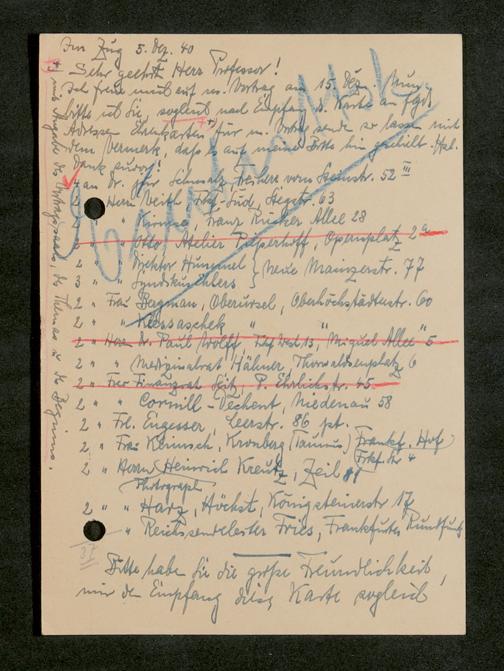 Im Zug 5. Dez. 40
Sehr geehrter Herr Professor!
Ich freue mich auf m. Vortrag am 15. Dez. Nun
bitte ich Sie sogleich nach Empfang d. Karte an folgd.
Adressen Ehrenkarten für m. Vortrag senden zu lassen mit
dem Vermerk, dass es auf meine Bitte hin geschieht. Hzl.
Dank zuvor!
4 an Dr. Schmalz, Freiherr vom Steinstr. 52 III
2 " Herrn Veith Frkf. Süd, Stegstr. 63
" Franz Rücker Allee 28
" Otto, Atelier Pieperhoff, Opernplatz 2
2 " Direktor Hummel
3 " Neue Mainzerstr. 77
2 " Frau Bagman, Oberursel, Oberhöchstadterstr. 60
2 " " "
2 " Herr Dr. Paul Wolff "Miquel Allee" 5
2 " " Medizinalrat Hähner, Thorwaldsenplatz 6
2 " Frau Finanzrat Opitz, P. Ehrlichstr. 45
2 " " Cornill-Dechent, Niedenau 58
2 " Frl. Engesser, Leerstr. 86 pt.
2 " Frau Reinsch, Kronberg (Taunus) Frankf. Hof
Frkf. Str 4
2 " Herrn Heinrich Kreutz, Zeil
Photograph
2 " " Harz, Höchst, Königsteinerstr 17
" Reichssendeleiter Fries, Frankfurter Rundfunk
Bitte habe Sie die große Freundlichkeit,
mir den Empfang dieser Karte sogleich
mit Angabe des Vortragssaals, des Themas u. des Beginns.